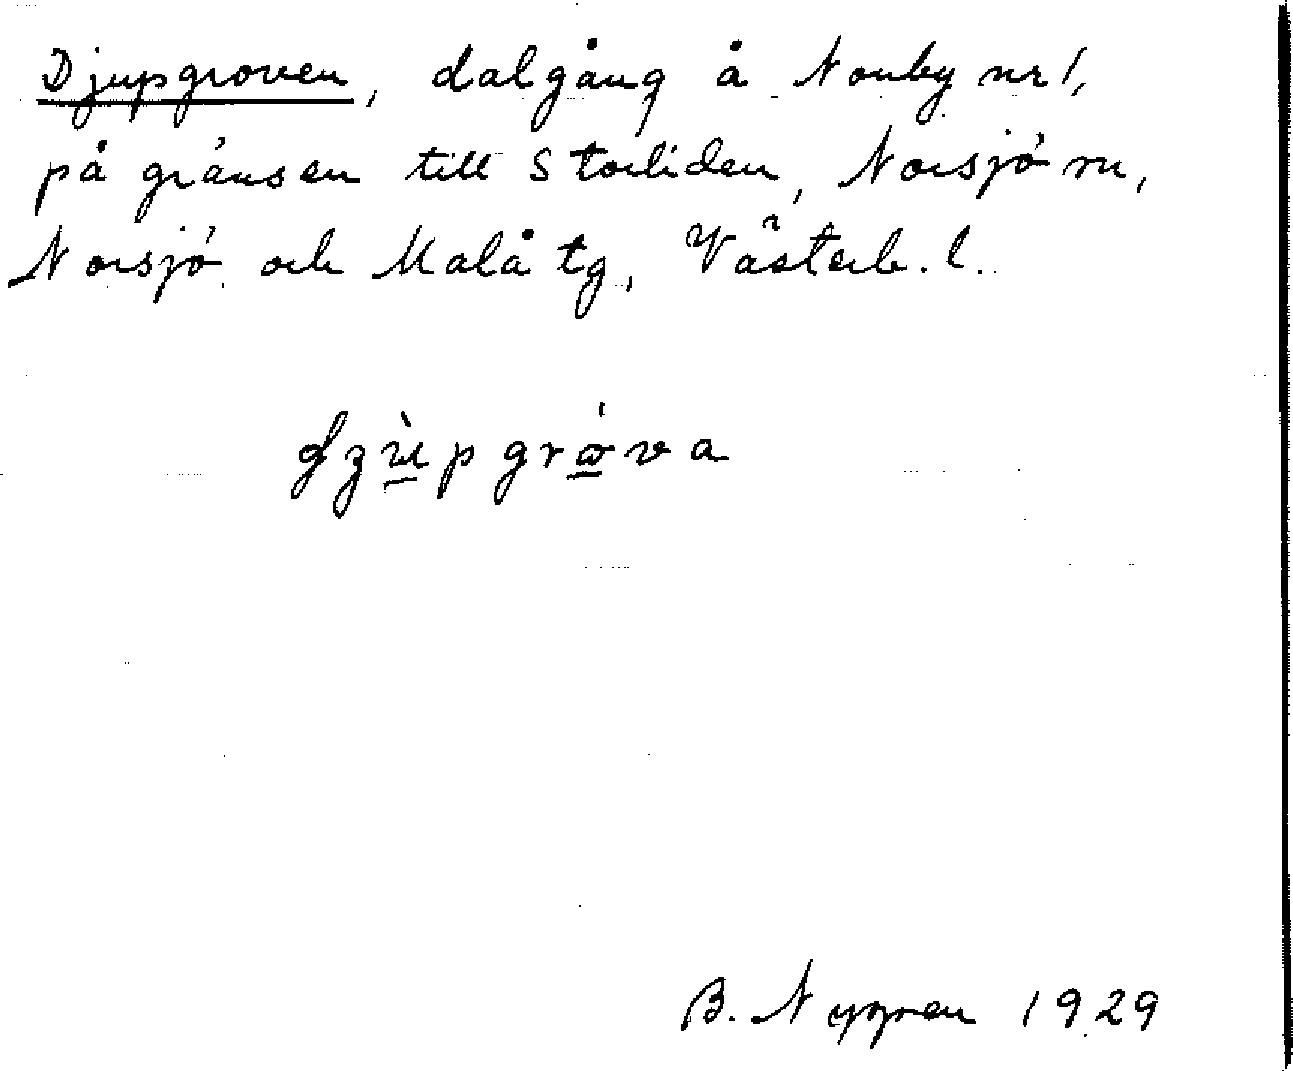 Djupgroven, dalgång å Norrby nr 1,
på gränsen till Storliden, Norsjö sn,
Norsjö och Malå tg, Västerb. l.
B. Nygren 1929